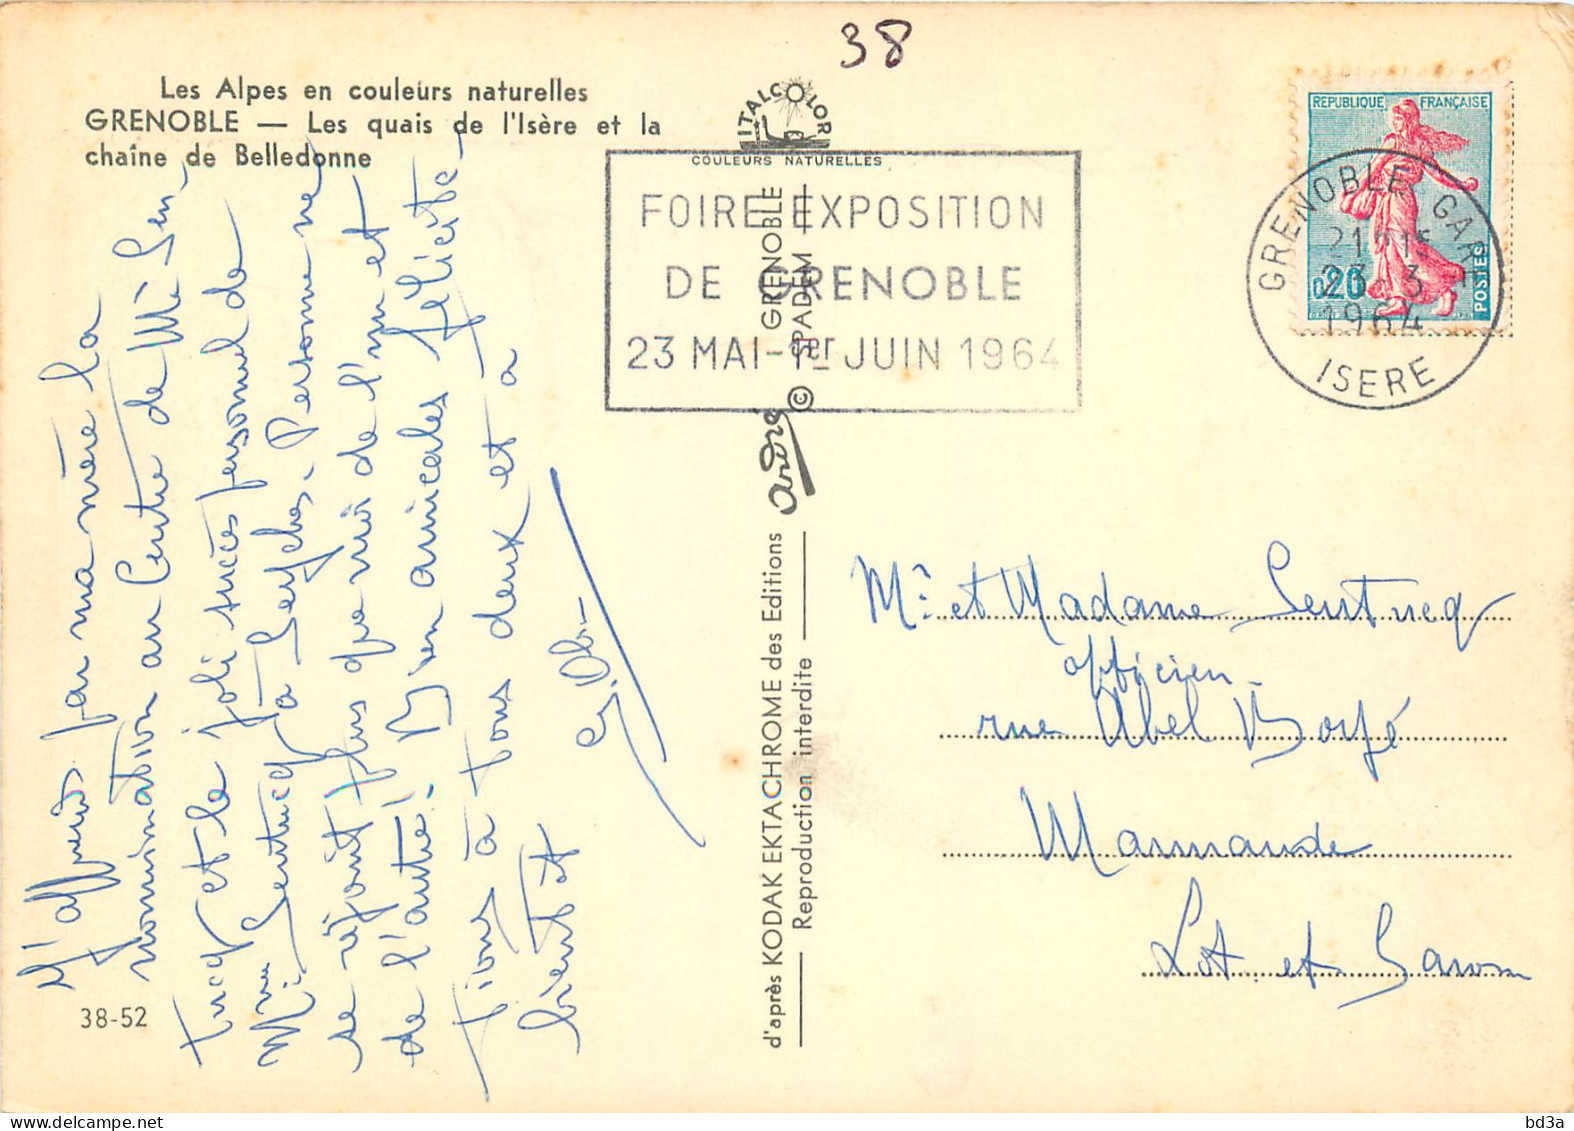 38
Les Alpes en couleurs naturelles
GRENOBLE — Les quais de l'Isère et la
chaîne de Belledonne
ITALCOLOR
COULEURS NATURELLES
FOIRE EXPOSITION
DE GRENOBLE
23 MAI-1er JUIN 1964
REPUBLIQUE FRANÇAISE
0,20
POSTES
GRENOBLE GARE
21H15
23-3
1964
ISERE
J'apprends par ma mère la
nomination au Centre de Mr Sen
tucq et le joli succès personnel de
Mme Sentucq à Seyches. Personne ne
se réjouit plus que moi de l'un et
de l'autre! Bien amicales félicita-
tions à tous deux et à
bientôt
d'après KODAK EKTACHROME des Editions André © SPADEM GRENOBLE
Reproduction interdite
Mr et Madame Sentucq
opticien
rue Abel Boyé
Marmande
Lot et Garonne
38-52
bd3a